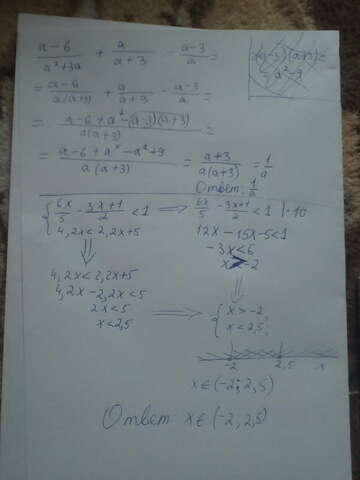 a-6/a²+3a + a/a+3 - a-3/a =
= a-6/a(a+3) + a/a+3 - a-3/a =
= a-6+a²-(a-3)(a+3)/a(a+3) =
= a-6+a²-a²+9/a(a+3) = a+3/a(a+3) = 1/a
Ответ: 1/a
{ 6x/5 - 3x+1/2 < 1 ⇒ 6x/5 - 3x+1/2 < 1 | ·10
4,2x < 2,2x+5
12x - 15x - 5 < 1
-3x < 6
x > -2
4,2x < 2,2x+5
4,2x - 2,2x < 5
2x < 5
x < 2,5
⇒ { x > -2
x < 2,5;
-2 2,5 x
x ∈ (-2; 2,5)
Ответ: x ∈ (-2; 2,5)